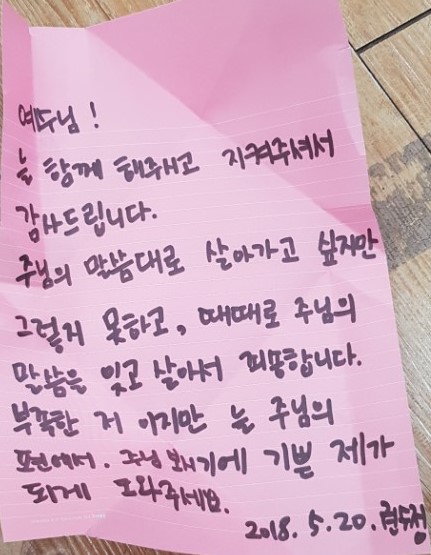 예수님!
늘 함께 해주시고 지켜주셔서
감사드립니다.
주님의 말씀대로 살아가고 싶지만
그렇게 못하고, 때때로 주님의
말씀을 잊고 살아서 죄송합니다.
부족한 저 이지만 늘 주님의
포인에서. 주님 보시기에 기쁜 제가
되게 도와주세요.
2018. 5.20.